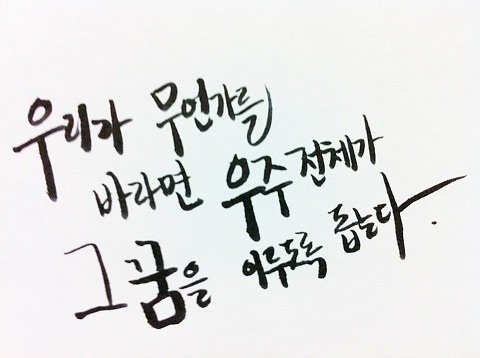 우리가 무언가를
바라면 우주 전체가
그 꿈을 이루도록 돕는다.